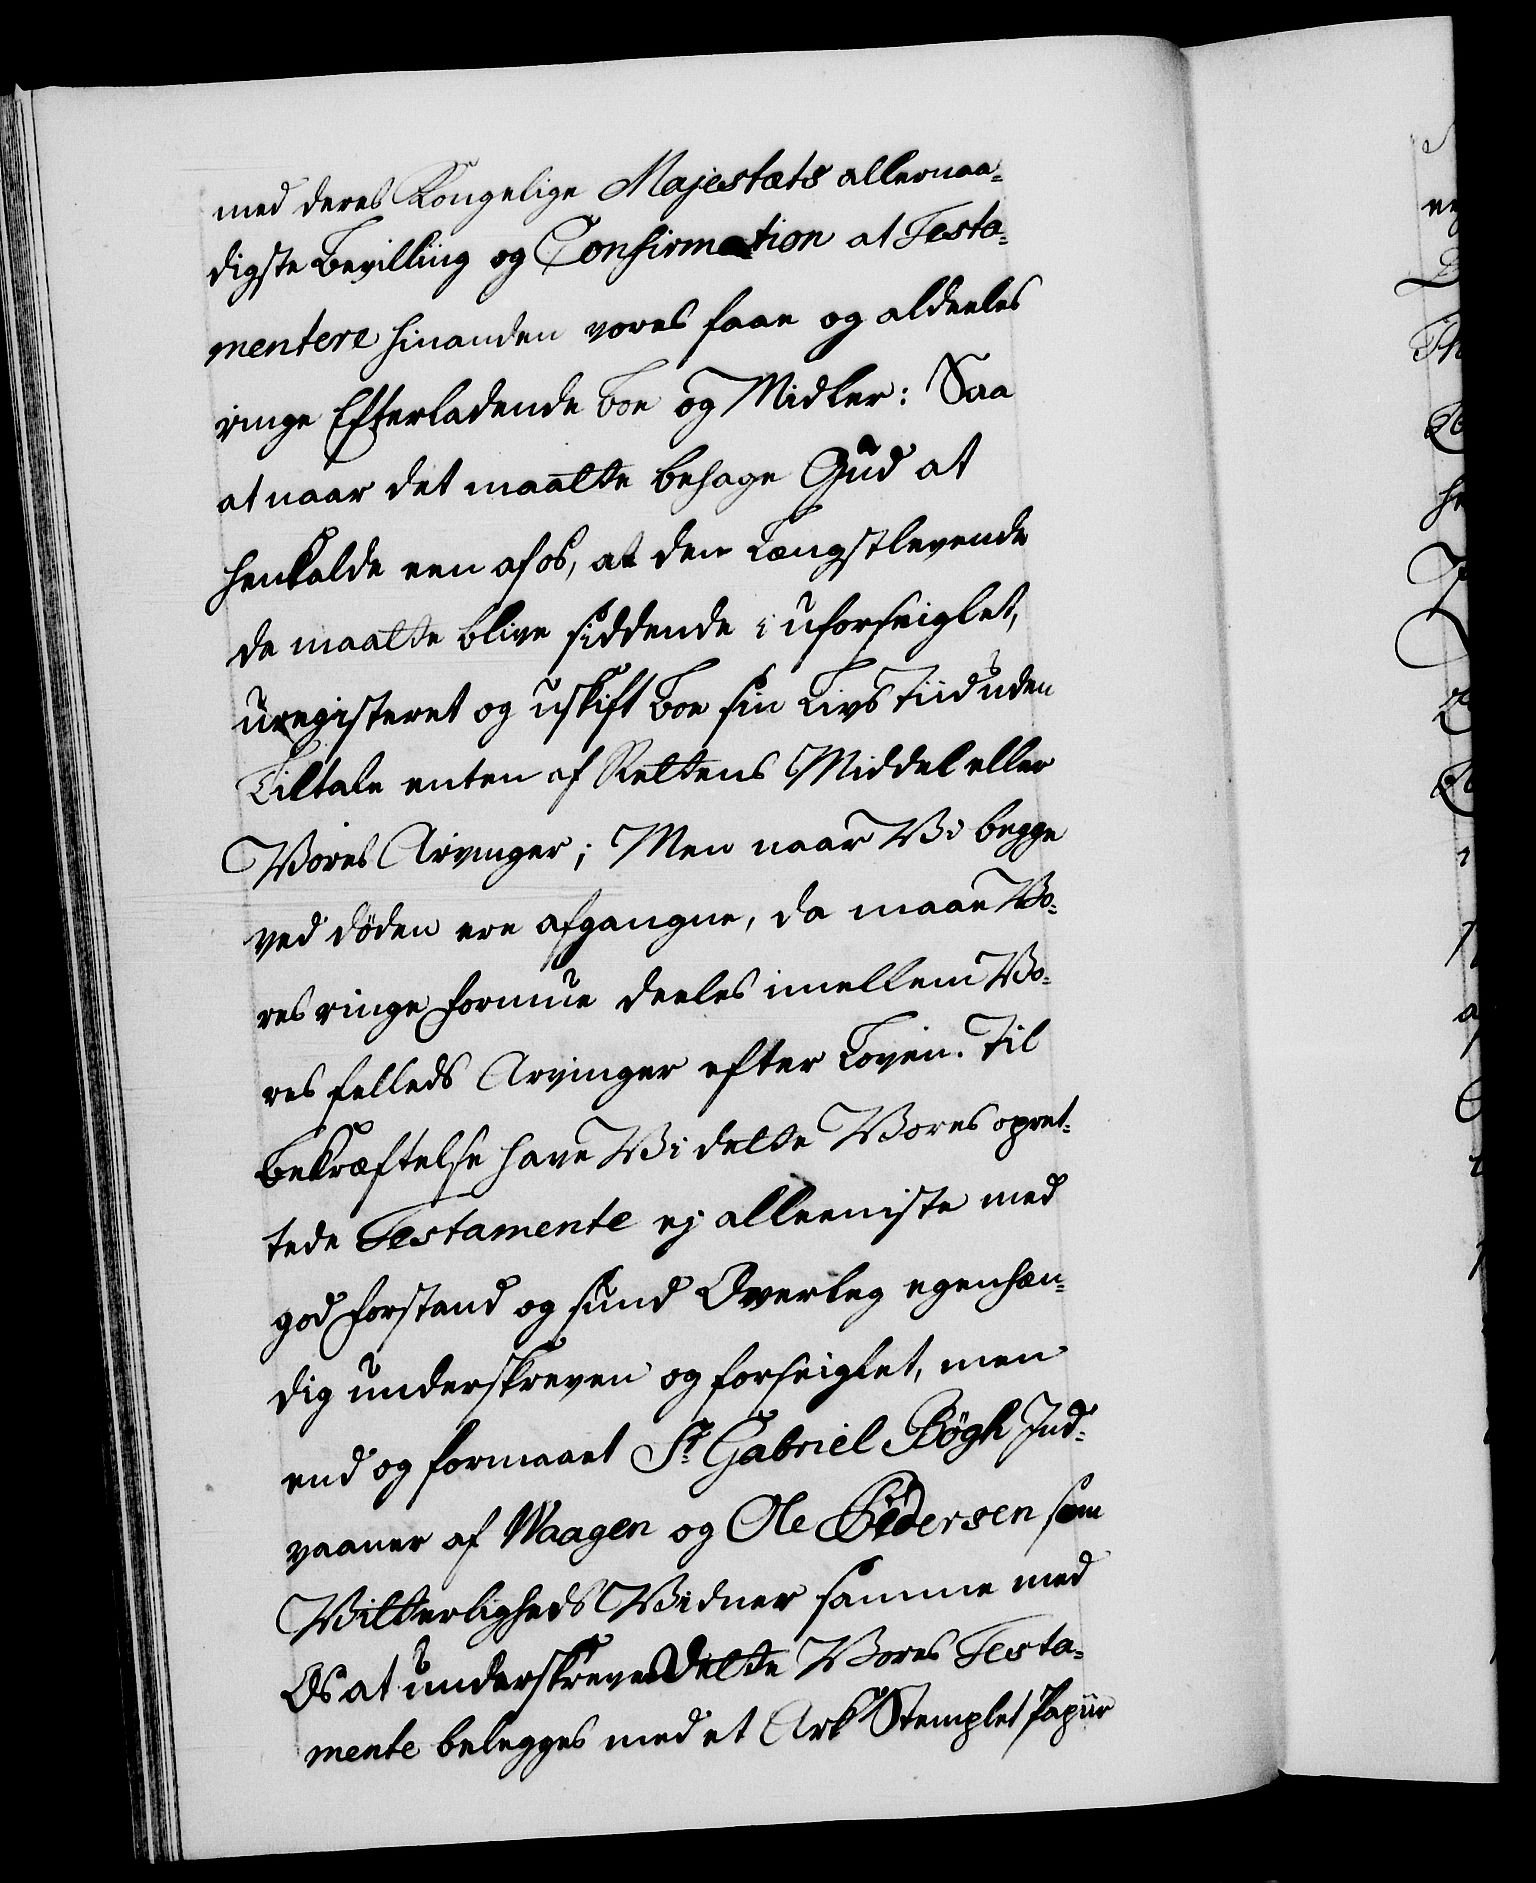 med deres Kongelige Majestæts allernaa-
digste Bevilling og Confirmation at Testa-
mentere hinanden vores faae og aldeeles
ringe Efterladende boe og Midler: Saa
at naar det maatte behage Gud at
henkalde een af os, at den Længstlevende
da maatte blive siddende i uforseiglet,
uregisteret og uskift boe sin Livs Tiid uden
Tiltale enten af Rettens Middel eller
Vores Arvinger; Men naar Vi begge
ved døden ere afgangne, da maae Vo-
res ringe formue deeles imellem Vo-
res felleds Arvinger efter Loven. Til
bekræftelse have Vi dette Vores opret-
tede Testamente ej alleeniste med
god forstand og sund Overleg egenhæn-
dig underskreven og forseiglet, men
end og formaaet Sr. Gabriel Bögh Ind-
vaaner af Waagen og Ole Pedersen som
Vitterligheds Vidner samme med
Os at underskreve dette Vores Testa-
mente belegges med et Ark Stemplet Papiir